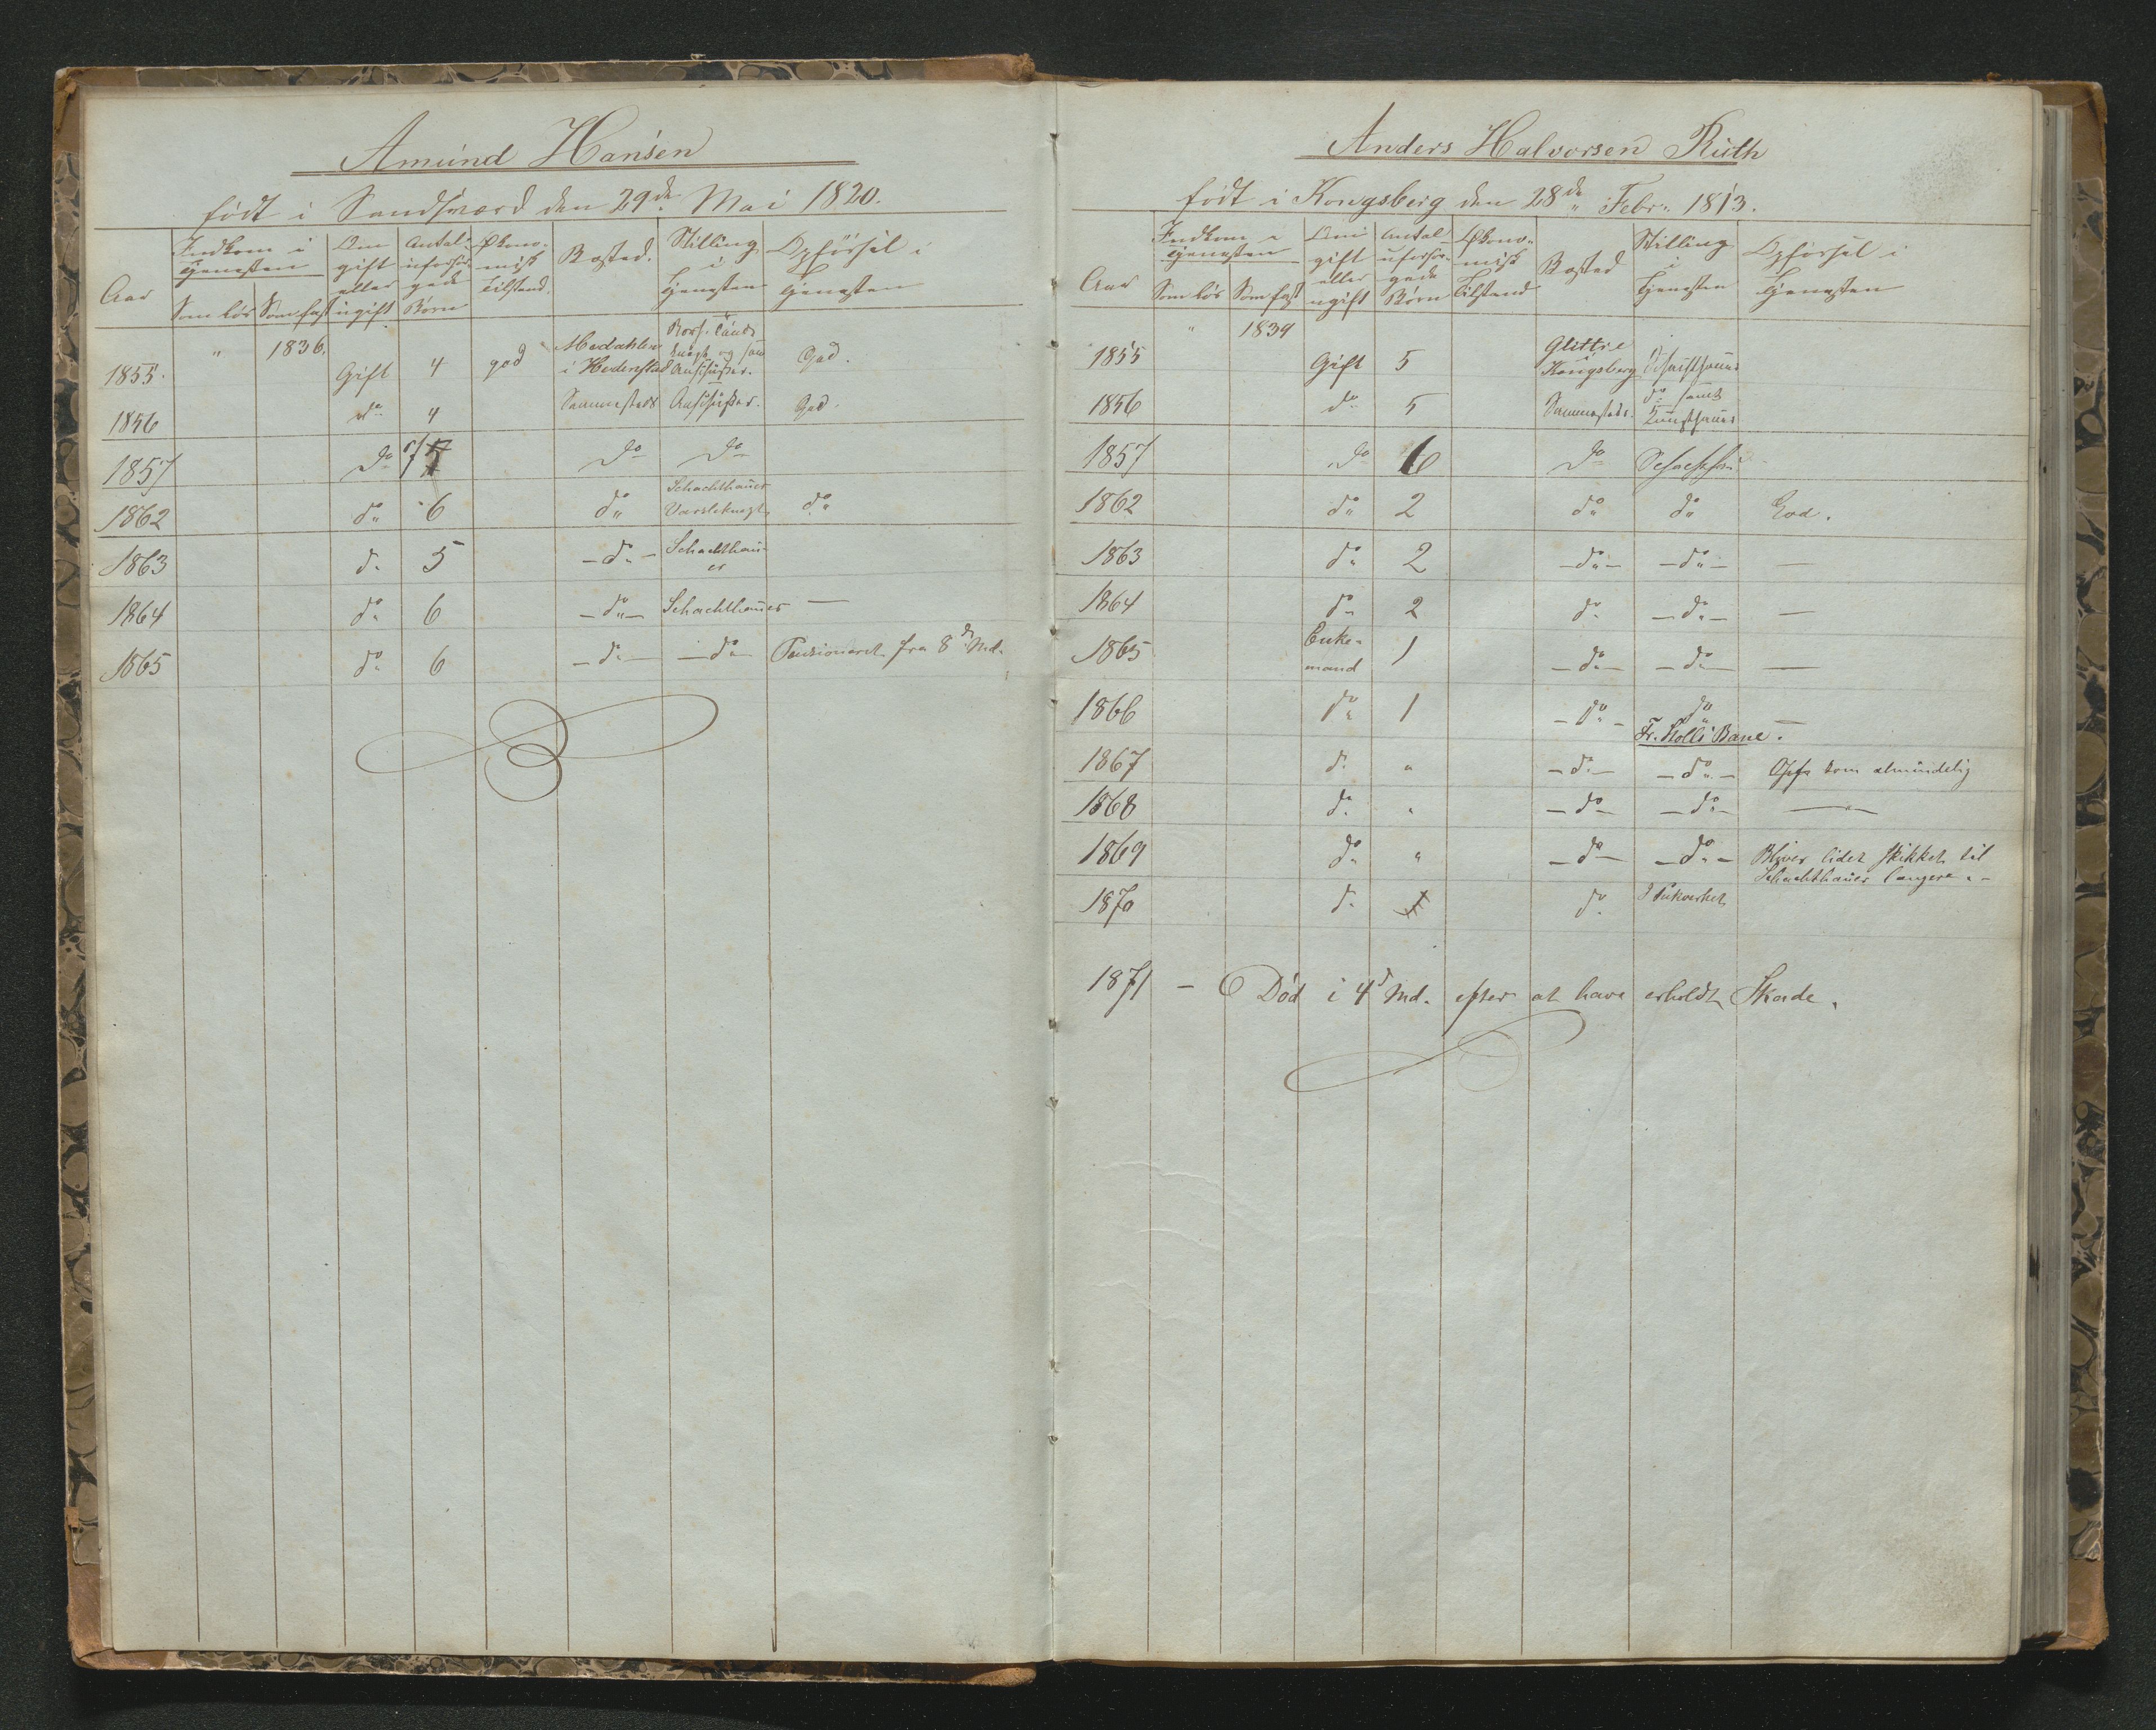 Amund Hansen
født i Sandsværd den 29de Mai 1820.
Aar | Indkom i Tjenesten | Om gift eller ugift | Antal uforsørgede Børn | Økonomisk Tilstand | Bosted. | Stilling i Tjenesten | Opførsel i Tjenesten
Som løs | Som fast
1855. | " | 1836. | Gift | 4 | god | Medahlen i Hedenstad | og Ausschusser. | God.
1856 | do | 4 | Sammesteds | Ausschusser. | God.
1857 | do | do | do
1862 | do | 6 | do | Schachthauer | do
1863 | do | 5 | - do - | Schachthauer
1864 | do | 6 | - do - | Schachthauer | —
1865 | do | 6 | - do - | - do - | Pensioneret fra 8de Md.
Anders Halvorsen Ruth
født i Kongsberg den 28de Febr. 1813.
Aar | Indkom i Tjenesten | Om gift eller ugift | Antal uforsørgede Børn | Økonomisk Tilstand | Bosted | Stilling i Tjenesten | Opførsel i Tjenesten
Som løs | Som fast
1855 | " | 1839 | Gift | 5 | Glittre Kongsberg | Schachthauer
1856 | do | 5 | Sammesteds. | do samt Kunsthauer
1857 | do | 6 | do | Schachth
1862 | do | 2 | do | do | God.
1863 | do | 2 | - do - | - do - | —
1864 | do | 2 | do | - do - | —
1865 | Enkemand | 1 | - do - | - do - | —
1866 | do | 1 | - do - | do | —
Fr. Stolls Bane.
1867 | do | " | - do - | - do - | Opf. som almindelig
1868 | do | " | - do - | - do - | —
1869 | do | " | - do - | - do - | Bliver lidet skikket til
Schachthauer længere. -
1870 | do | do | I Pukverket
1871 - Død i 4de Md. efter at have erholdt Skade.